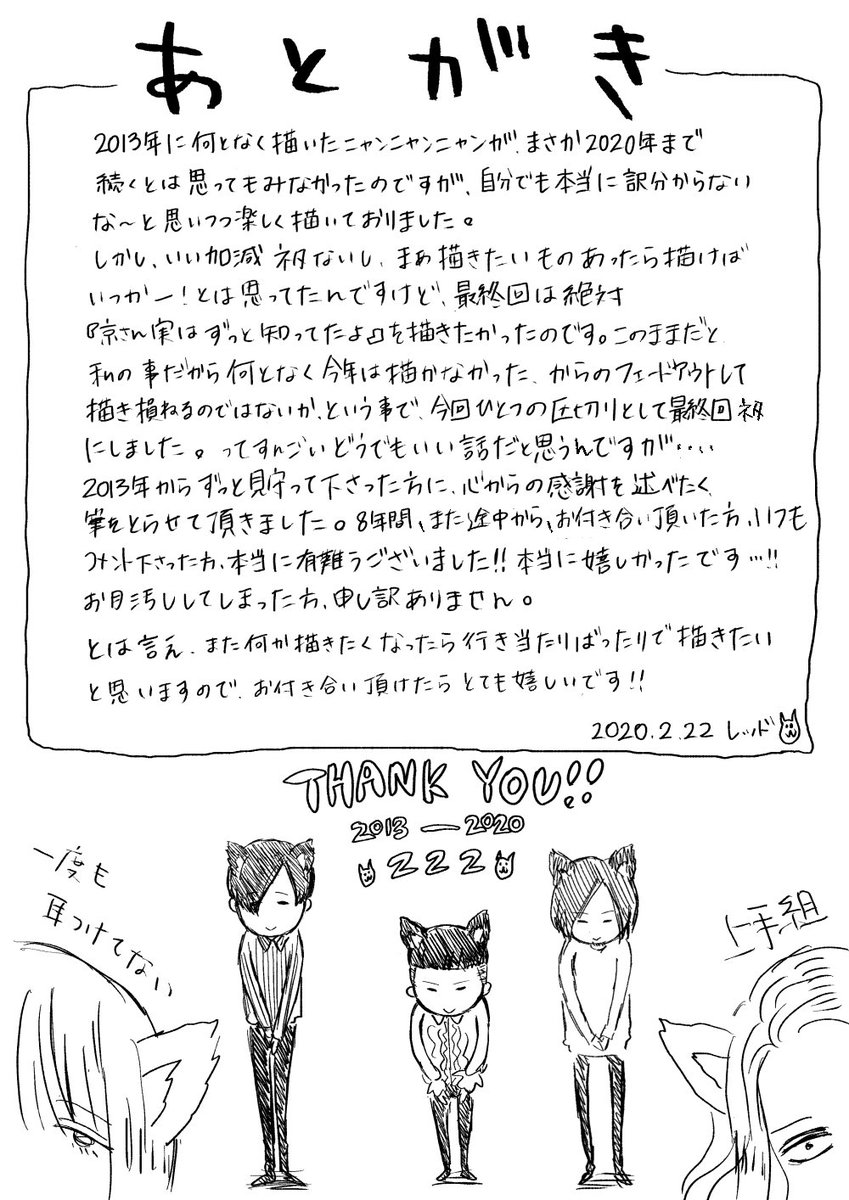 あとがき
2013年に何となく描いたニャンニャンニャンが、まさか2020年まで
続くとは思ってもみなかったのですが、自分でも本当に訳分からない
な〜と思いつつ楽しく描いておりました。
しかし、いい加減ネタないし、まぁ描きたいものあったら描けば
いっかー!とは思ってたんですけど、最終回は絶対
『京さん実はずっと知ってたよ』を描きたかったのです。このままだと
私の事だから何となく今年は描かなかった、からのフェードアウトして
描き損ねるのではないか、という事で、今回ひとつの区切りとして最終回ネタ
にしました。ってすんごいどうでもいい話だと思うんですが‥‥
2013年からずっと見守って下さった方に、心からの感謝を述べたく
筆をとらせて頂きました。8年間、また途中から、お付き合い頂いた方、いつも
コメント下さった方、本当に有難うございました!!本当に嬉しかったです…!!
お目汚ししてしまった方、申し訳ありません。
とは言え、また何か描きたくなったら行き当たりばったりで描きたい
と思いますので、お付き合い頂けたらとても嬉しいです!!
2020.2.22 レッド
THANK YOU!!
2013—2020
222
一度も
耳つけてない
上手組